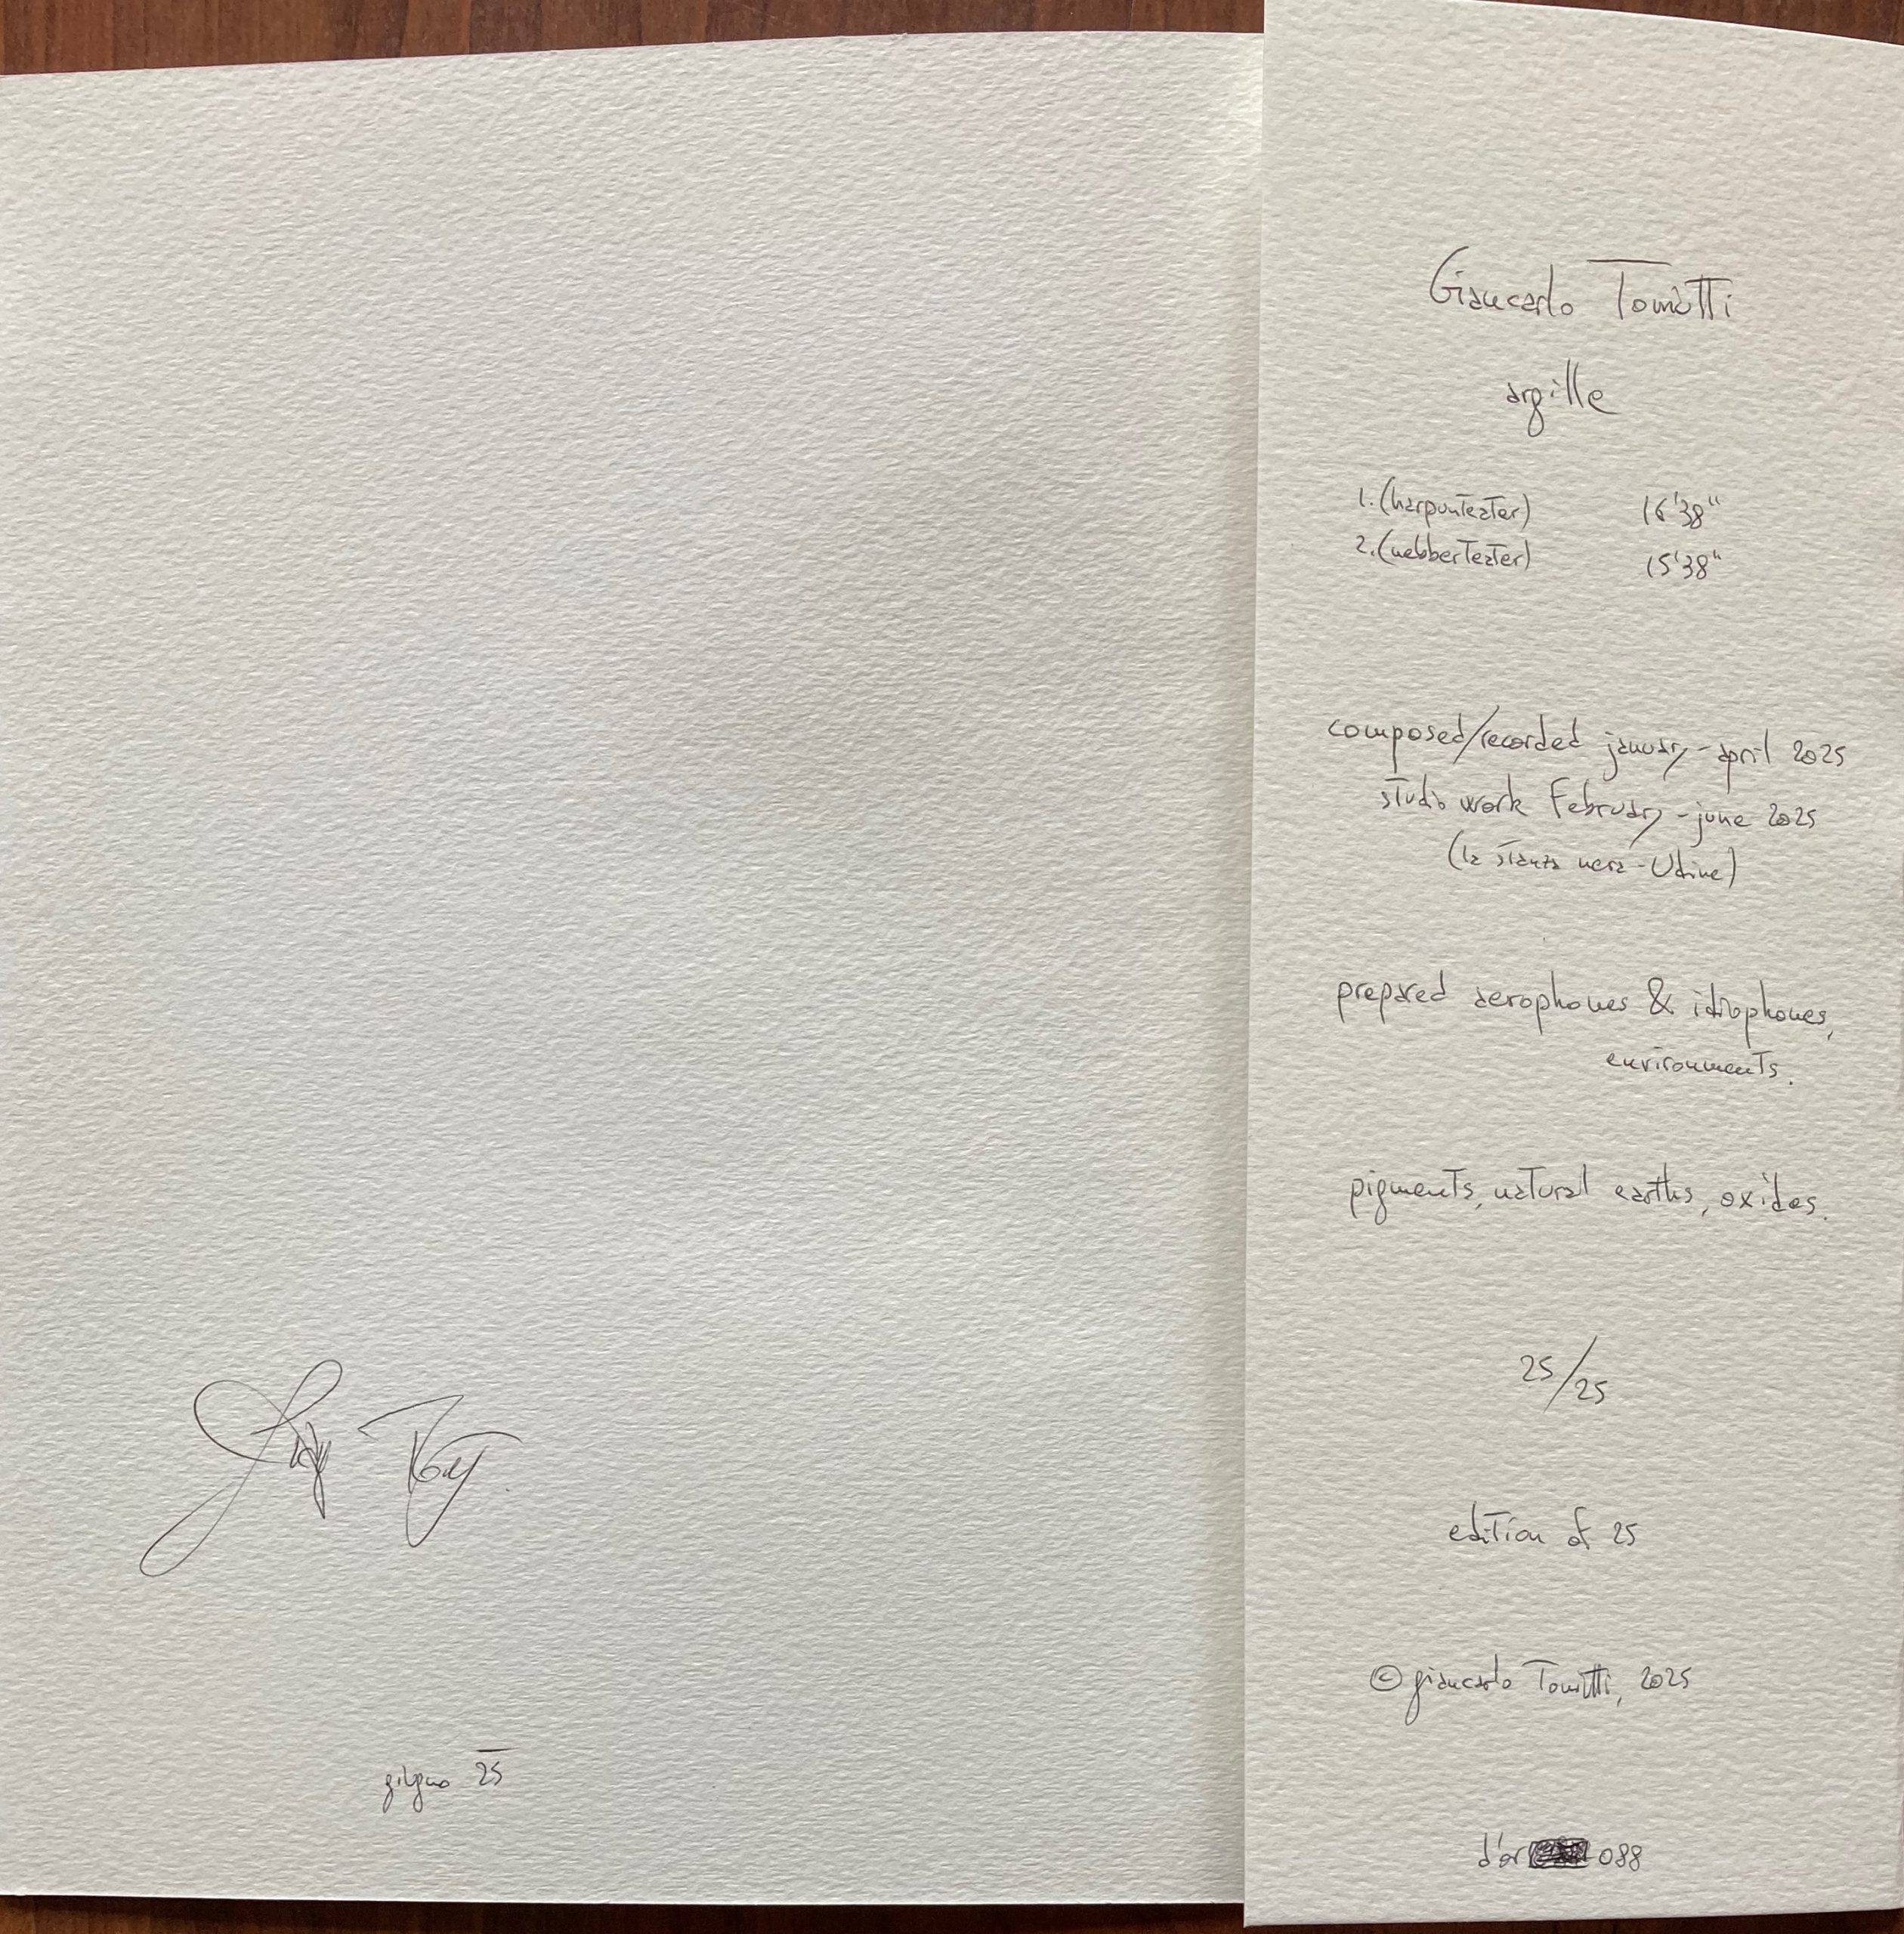 giugno 25
Giancarlo Toniutti
argille
1. (harpunteater) 16'38"
2. (nebberteater) 15'38"
composed/recorded january - april 2025
studio work february - june 2025
(la stanza nera - Udine)
prepared aerophones & idiophones,
environments.
pigments, natural earths, oxides.
25/25
edition of 25
© giancarlo Toniutti, 2025
d'or 088